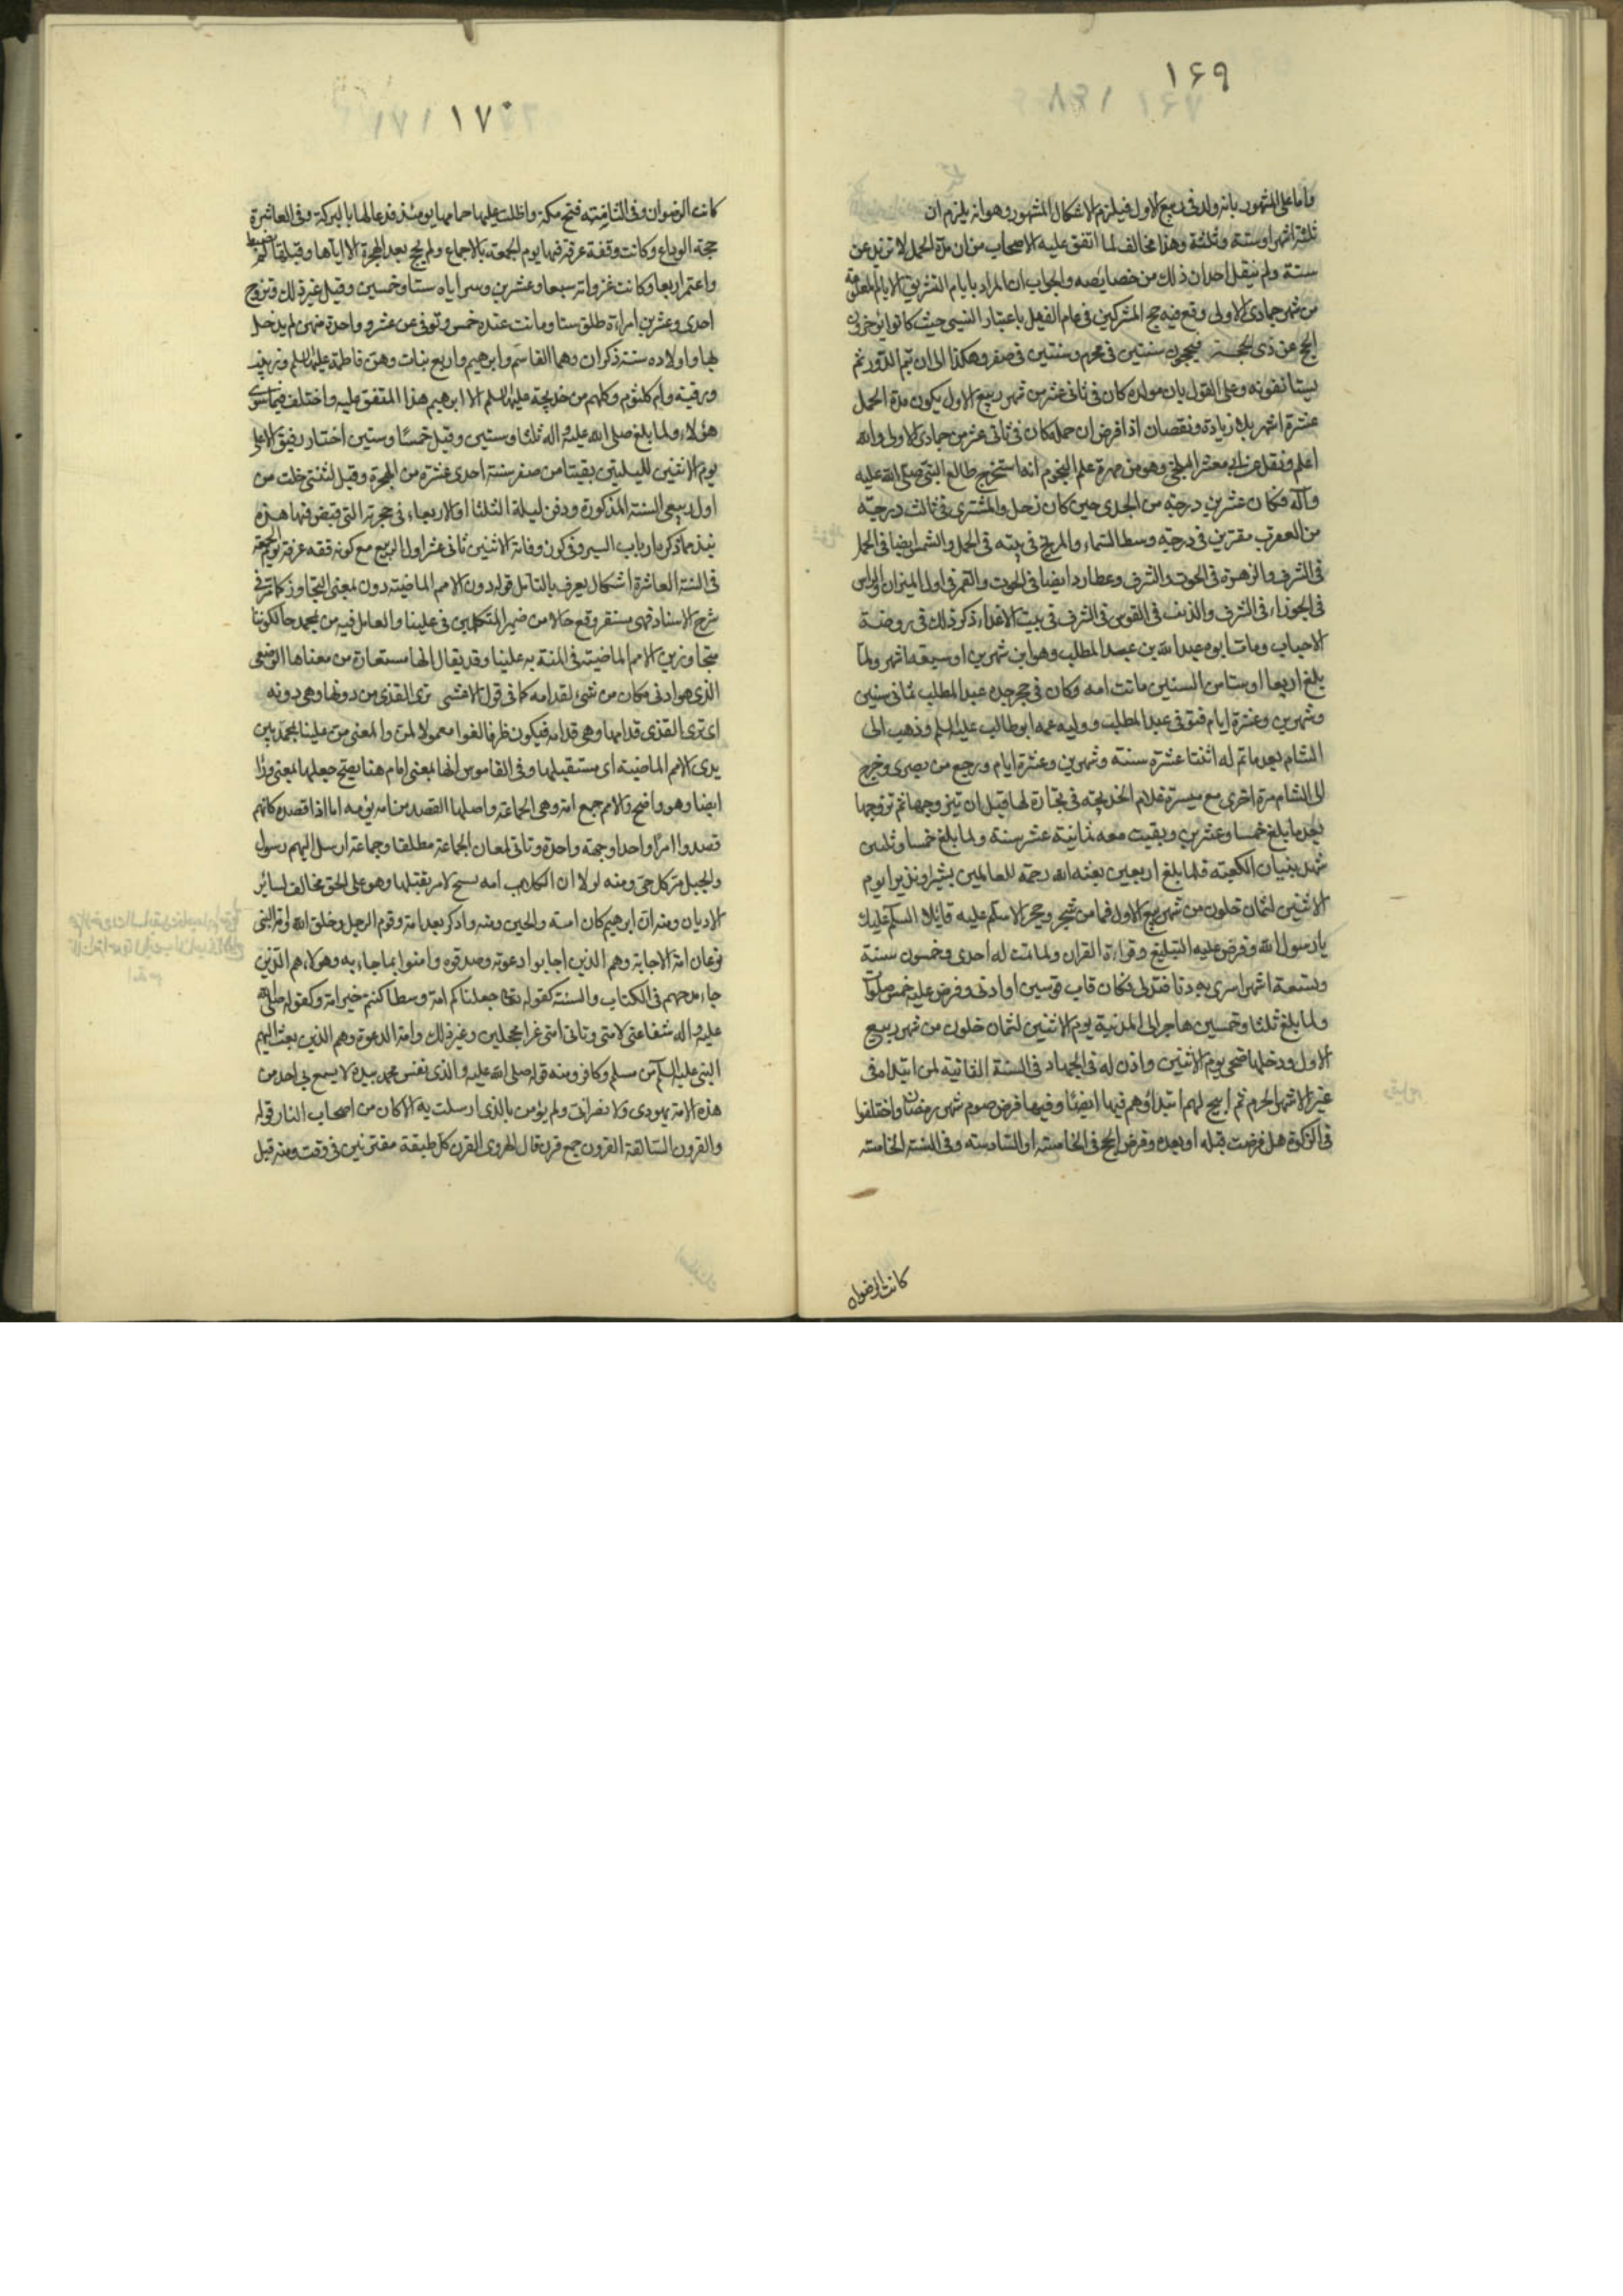 ١۶٩
واما على المشهور بانه ولد فى ربيع الاول فيلزم الاشكال المشهور وهو انه يلزم ان
ثلثة اشهر او سنة وثلثة وهذا مخالف لما اتفق عليه الاصحاب من ان مدة الحمل لا تزيد عن
سنة ولم ينقل احد ان ذلك من خصايصه والجواب ان المراد بايام التشريق الايام المعلومة
من شهر جمادى الاولى وقع فيه حج المشركين فى عام الفيل باعتبار النسئ حيث كانوا يؤخرون
الحج عن ذى الحجة فيحجون سنتين فى محرم وسنتين فى صفر وهكذا الى ان يتم الدور ثم
يستانفونه وعلى القول بان مولده كان فى ثانى عشر من شهر ربيع الاول يكون مدة الحمل
عشرة اشهر بلا زيادة ونقصان اذا فرض ان حمله كان فى ثانى عشر من جمادى الاولى والله
اعلم ونقل عن ابى معشر البلخى وهو من مهرة علم النجوم انه استخرج طالع النبى صلى الله عليه
وآله فكان عشرين درجة من الجدى حين كان زحل والمشترى فى ثالث درجة
من العقرب مقترنين فى درجة وسط السماء والمريخ فى بيته فى الحمل والشمس ايضا فى الحمل
فى الشرف والزهرة فى الحوت فى الشرف وعطارد ايضا فى الحوت والقمر فى اول الميزان والراس
فى الجوزاء فى الشرف والذنب فى القوس فى الشرف فى بيت الاعداء ذكر ذلك فى روضة
الاحباب ومات ابوه عبد الله بن عبد المطلب وهو ابن شهرين او سبعة اشهر ولما
بلغ اربعا او ستا من السنين ماتت امه وكان فى حجر جده عبد المطلب ثمانى سنين
وشهرين وعشرة ايام فتوفى عبد المطلب ووليه عمه ابو طالب عليه السلم وذهب الى
الشام بعد ما تم له اثنتا عشرة سنة وشهرين وعشرة ايام ورجع من بصرى وخرج
الى الشام مرة اخرى مع ميسرة غلام الخديجة فى تجارة لها قبل ان يتزوجها ثم تزوجها
بعد ما بلغ خمسا وعشرين وبقيت معه ثمانية عشر سنة ولما بلغ خمسا وثلثين
شهد بنيان الكعبة فلما بلغ اربعين بعثه الله رحمة للعالمين بشيرا ونذيرا يوم
الاثنين لثمان خلون من شهر ربيع الاول فما من شجر وحجر الا سلم عليه قايلا السلم عليك
يا رسول الله وفرض عليه التبليغ وقراءة القران ولما تمت له احدى وخمسون سنة
وتسعة اشهر اسرى به دنا فتدلى فكان قاب قوسين او ادنى وفرض عليه خمس صلوات
ولما بلغ ثلثا وخمسين هاجر الى المدنية يوم الاثنين لثمان خلون من شهر ربيع
الاول ودخلها ضحى يوم الاثنين واذن له فى الجهاد فى السنة الثانية لمن ابتداء فى
غير الاشهر الحرم ثم ابيح لهم ابتداؤهم فيها ايضا وفيها فرض صوم شهر رمضان واختلفوا
فى الزكوة هل فرضت قبله او بعده وفرض الحج فى الخامسة او السادسة وفى السنة الخامسة
كانت الرضوان
١٧٠
كانت الرضوان وفى الثامنة فتح مكة واظلت عليها حمامها يومئذ فدعا لها بالبركة وفى العاشرة
حجة الوداع وكانت وقفة عرفة فيها يوم الجمعة بالاجماع ولم يحج بعد الهجرة الا اياها وقبلها لم يضبط
واعتمر اربعا وكانت غزواته سبعا وعشرين وسراياه ستا وخمسين وقيل غير ذلك وتزوج
احدى وعشرين امراءة طلق ستا وماتت عنده خمس وتوفى عن عشر وواحدة منهن لم يدخل
بها واولاده ستة ذكران وهما القاسم وابرهيم واربع بنات وهن فاطمة عليها السلم وزينب
ورقية وام كلثوم وكلهم من خديجة عليها السلم الا ابرهيم هذا المتفق عليه واختلف فيما سوى
هؤلاء ولما بلغ صلى الله عليه واله ثلثا وستين وقيل خمسا وستين اختار رفيق الاعلى
يوم الاثنين لليلتين بقيتا من صفر سنة احدى عشرة من الهجرة وقيل لثنتى خلت من
اول ربيعى السنة المذكورة ودفن ليلة الثلثا او الاربعاء فى حجرته التى قبض فيها هذه
نبذ مما ذكره ارباب السير وفى كون وفاته الاثنين ثانى عشر اول الربيع مع كونه وقفه عرفة يوم الجمعة
فى السنة العاشرة اشكال يعرف بالتامل قوله دون الامم الماضية دون بمعنى التجاوز كما ترى فى
شرح الاسناد فهى مستقر وقع حالا من ضمير المتكلمين فى علينا والعامل فيه من بمحمد حالكوننا
متجاوزين الامم الماضية فى المنة به علينا وقد يقال انها مستعارة من معناها الوضعى
الذى هو ادنى مكان من شئ لقدامه كما فى قول الاعشى ترى القذى من دونها وهى دونه
اى ترى القذى قدامها وهى قدامه فيكون ظرفا لغوا معمولا لمن والمعنى من علينا بمحمد بين
يدى الامم الماضية اى مستقبلها وفى القاموس انها بمعنى امام هنا يصح جعلها بمعنى وراء
ايضا وهو واضح والامم جمع امة وهى الجماعة واصلها القصد من امه يؤمه اما اذا قصده كانهم
قصدوا امرا واحدا وجهة واحدة وتاتى لمعان الجماعة مطلقا وجماعة ارسل اليهم رسول
والجيل من كل حى ومنه لولا ان الكلاب امه تسبح لامر بقتلها وهو على الحق مخالف لساير
الاديان ومنه ان ابرهيم كان امة والحين ومنه وادكر بعد امة وقوم الرجل وخلق الله وامة النبى
نوعان امة الاجابة وهم الذين اجابوا دعوته وصدقوه وامنوا بما جاء به وهولاء هم الذين
جاء مدحهم فى الكتاب والسنة كقوله تعالى جعلناكم امة وسطا كنتم خير امة وكقوله صلى الله
عليه واله شفاعتى لامتى وتاتى امتى غرا محجلين وغير ذلك وامة الدعوة وهم الذين بعث اليهم
النبى عليه السلم من مسلم وكافر ومنه قوله صلى الله عليه والذى نفس محمد بيده لا يسمع بى احد من
هذه الامة يهودى ولا نصرانى ولم يؤمن بالذى ارسلت به الا كان من اصحاب النار قوله
والقرون السالفة القرون جمع قرن قال الهروى القرن كل طبقة مقترنين فى وقت ومنه قيل